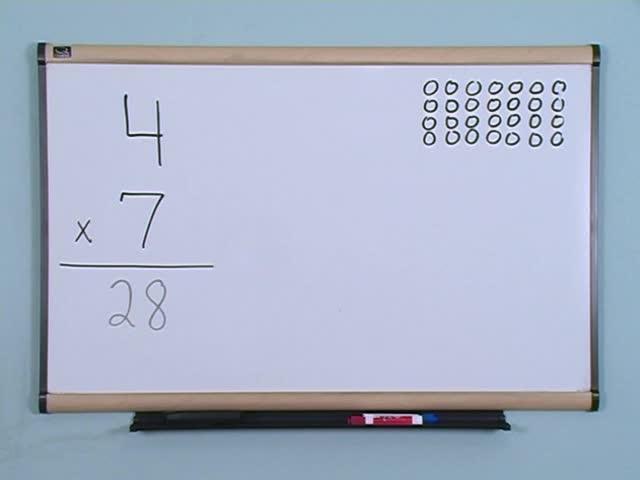 4
x 7
28